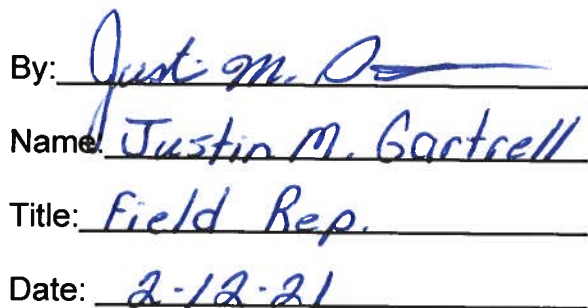 By: Just M.
Name: Justin M. Gartrell
Title: Field Rep.
Date: 2-12-21